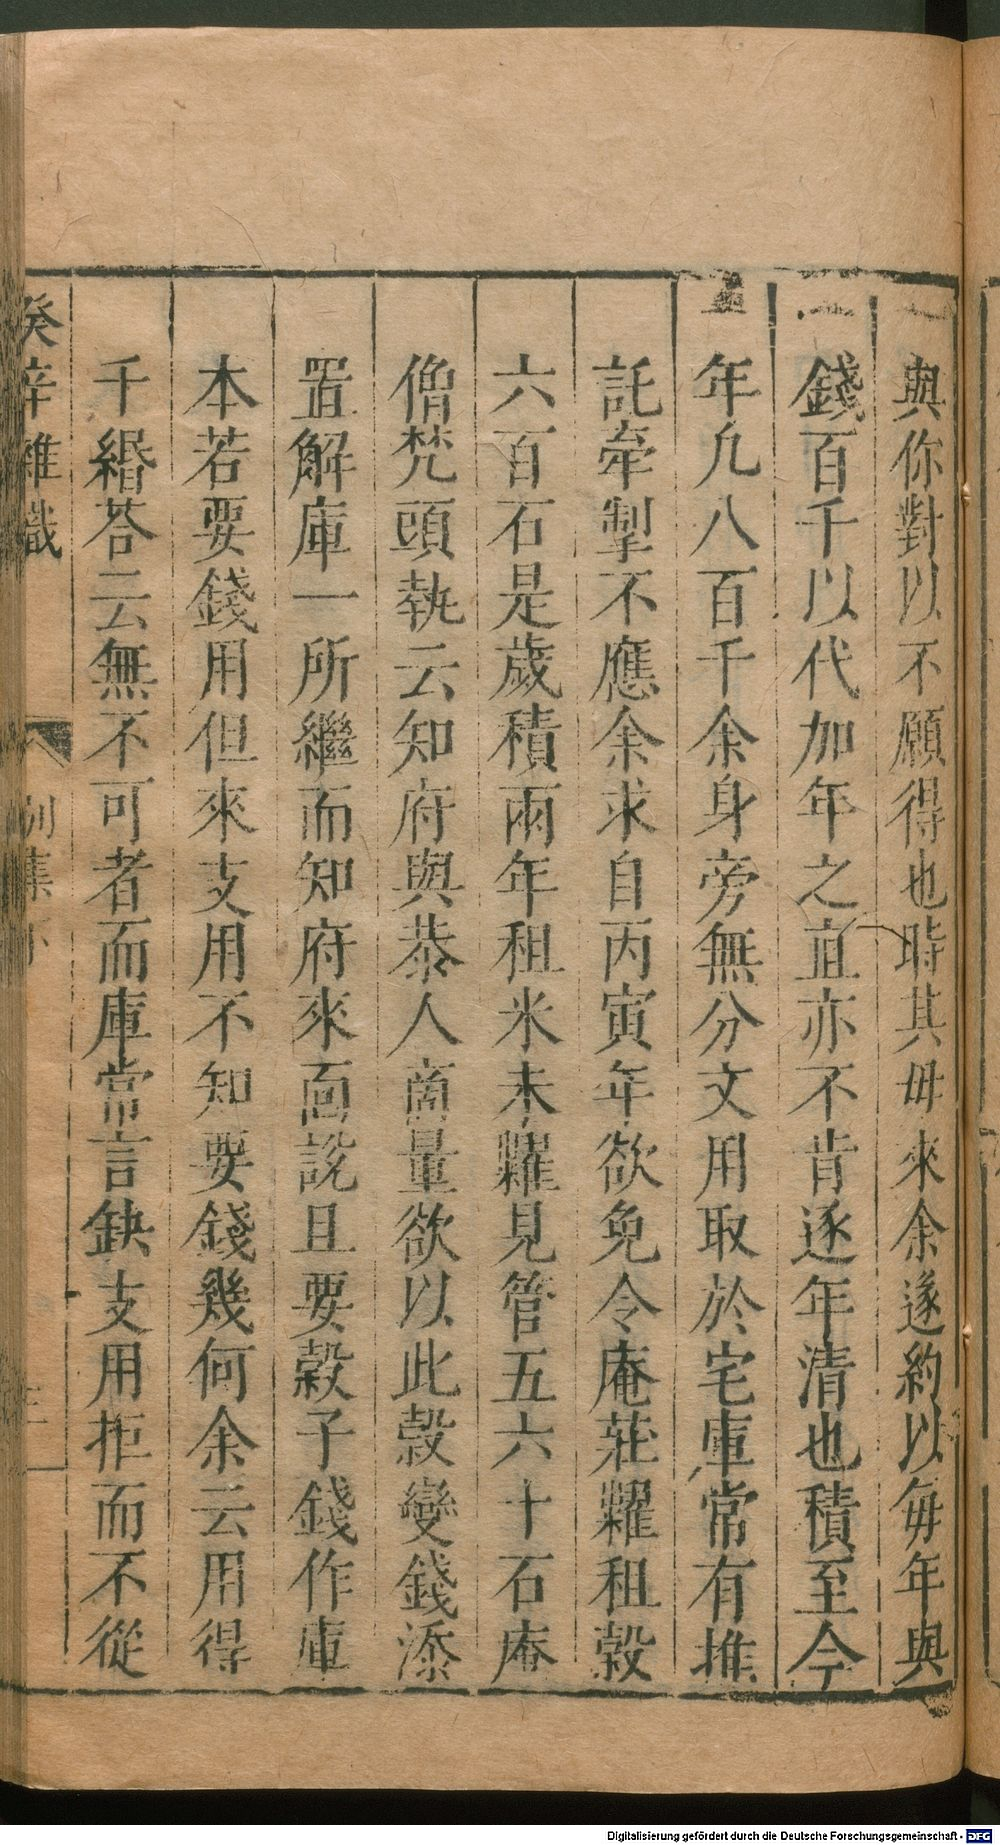 與你對以不願得也時其毋來余遂約以每年與
錢百千以代加年之直亦不肯逐年清也積至今
年凢八百千余身旁無分文用取於宅庫常有推
託牽掣不應余求自丙寅年欲免令庵莊糶租穀
六百石是歲積兩年租米未糶見管五六十石庵
僧梵頭執云知府與恭人商量欲以此穀變錢添
置解庫一所繼而知府來面說且要穀子錢作庫
本若要錢用但來支用不知要錢幾何余云用得
千緡荅云無不可者而庫常言缺支用拒而不從
癸辛雜識 別集下
Digitalisierung gefördert durch die Deutsche Forschungsgemeinschaft - DFG